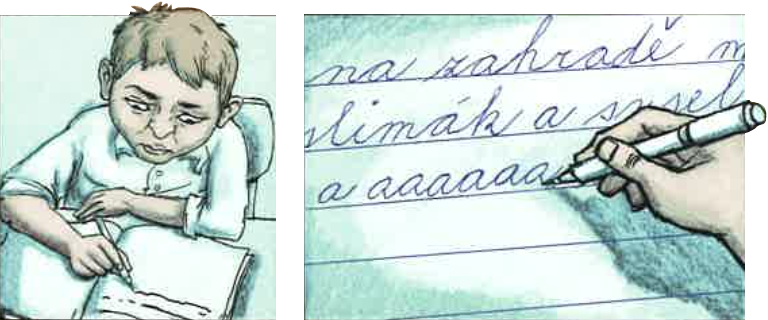 na zahradě m
slimák a sysel
a aaaaaaa